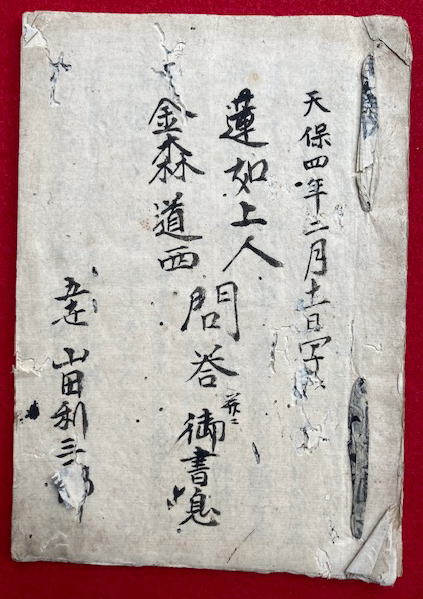 天保四年二月十一日写
蓮如上人
金森道西
問答 并ニ 御書息
山田利三